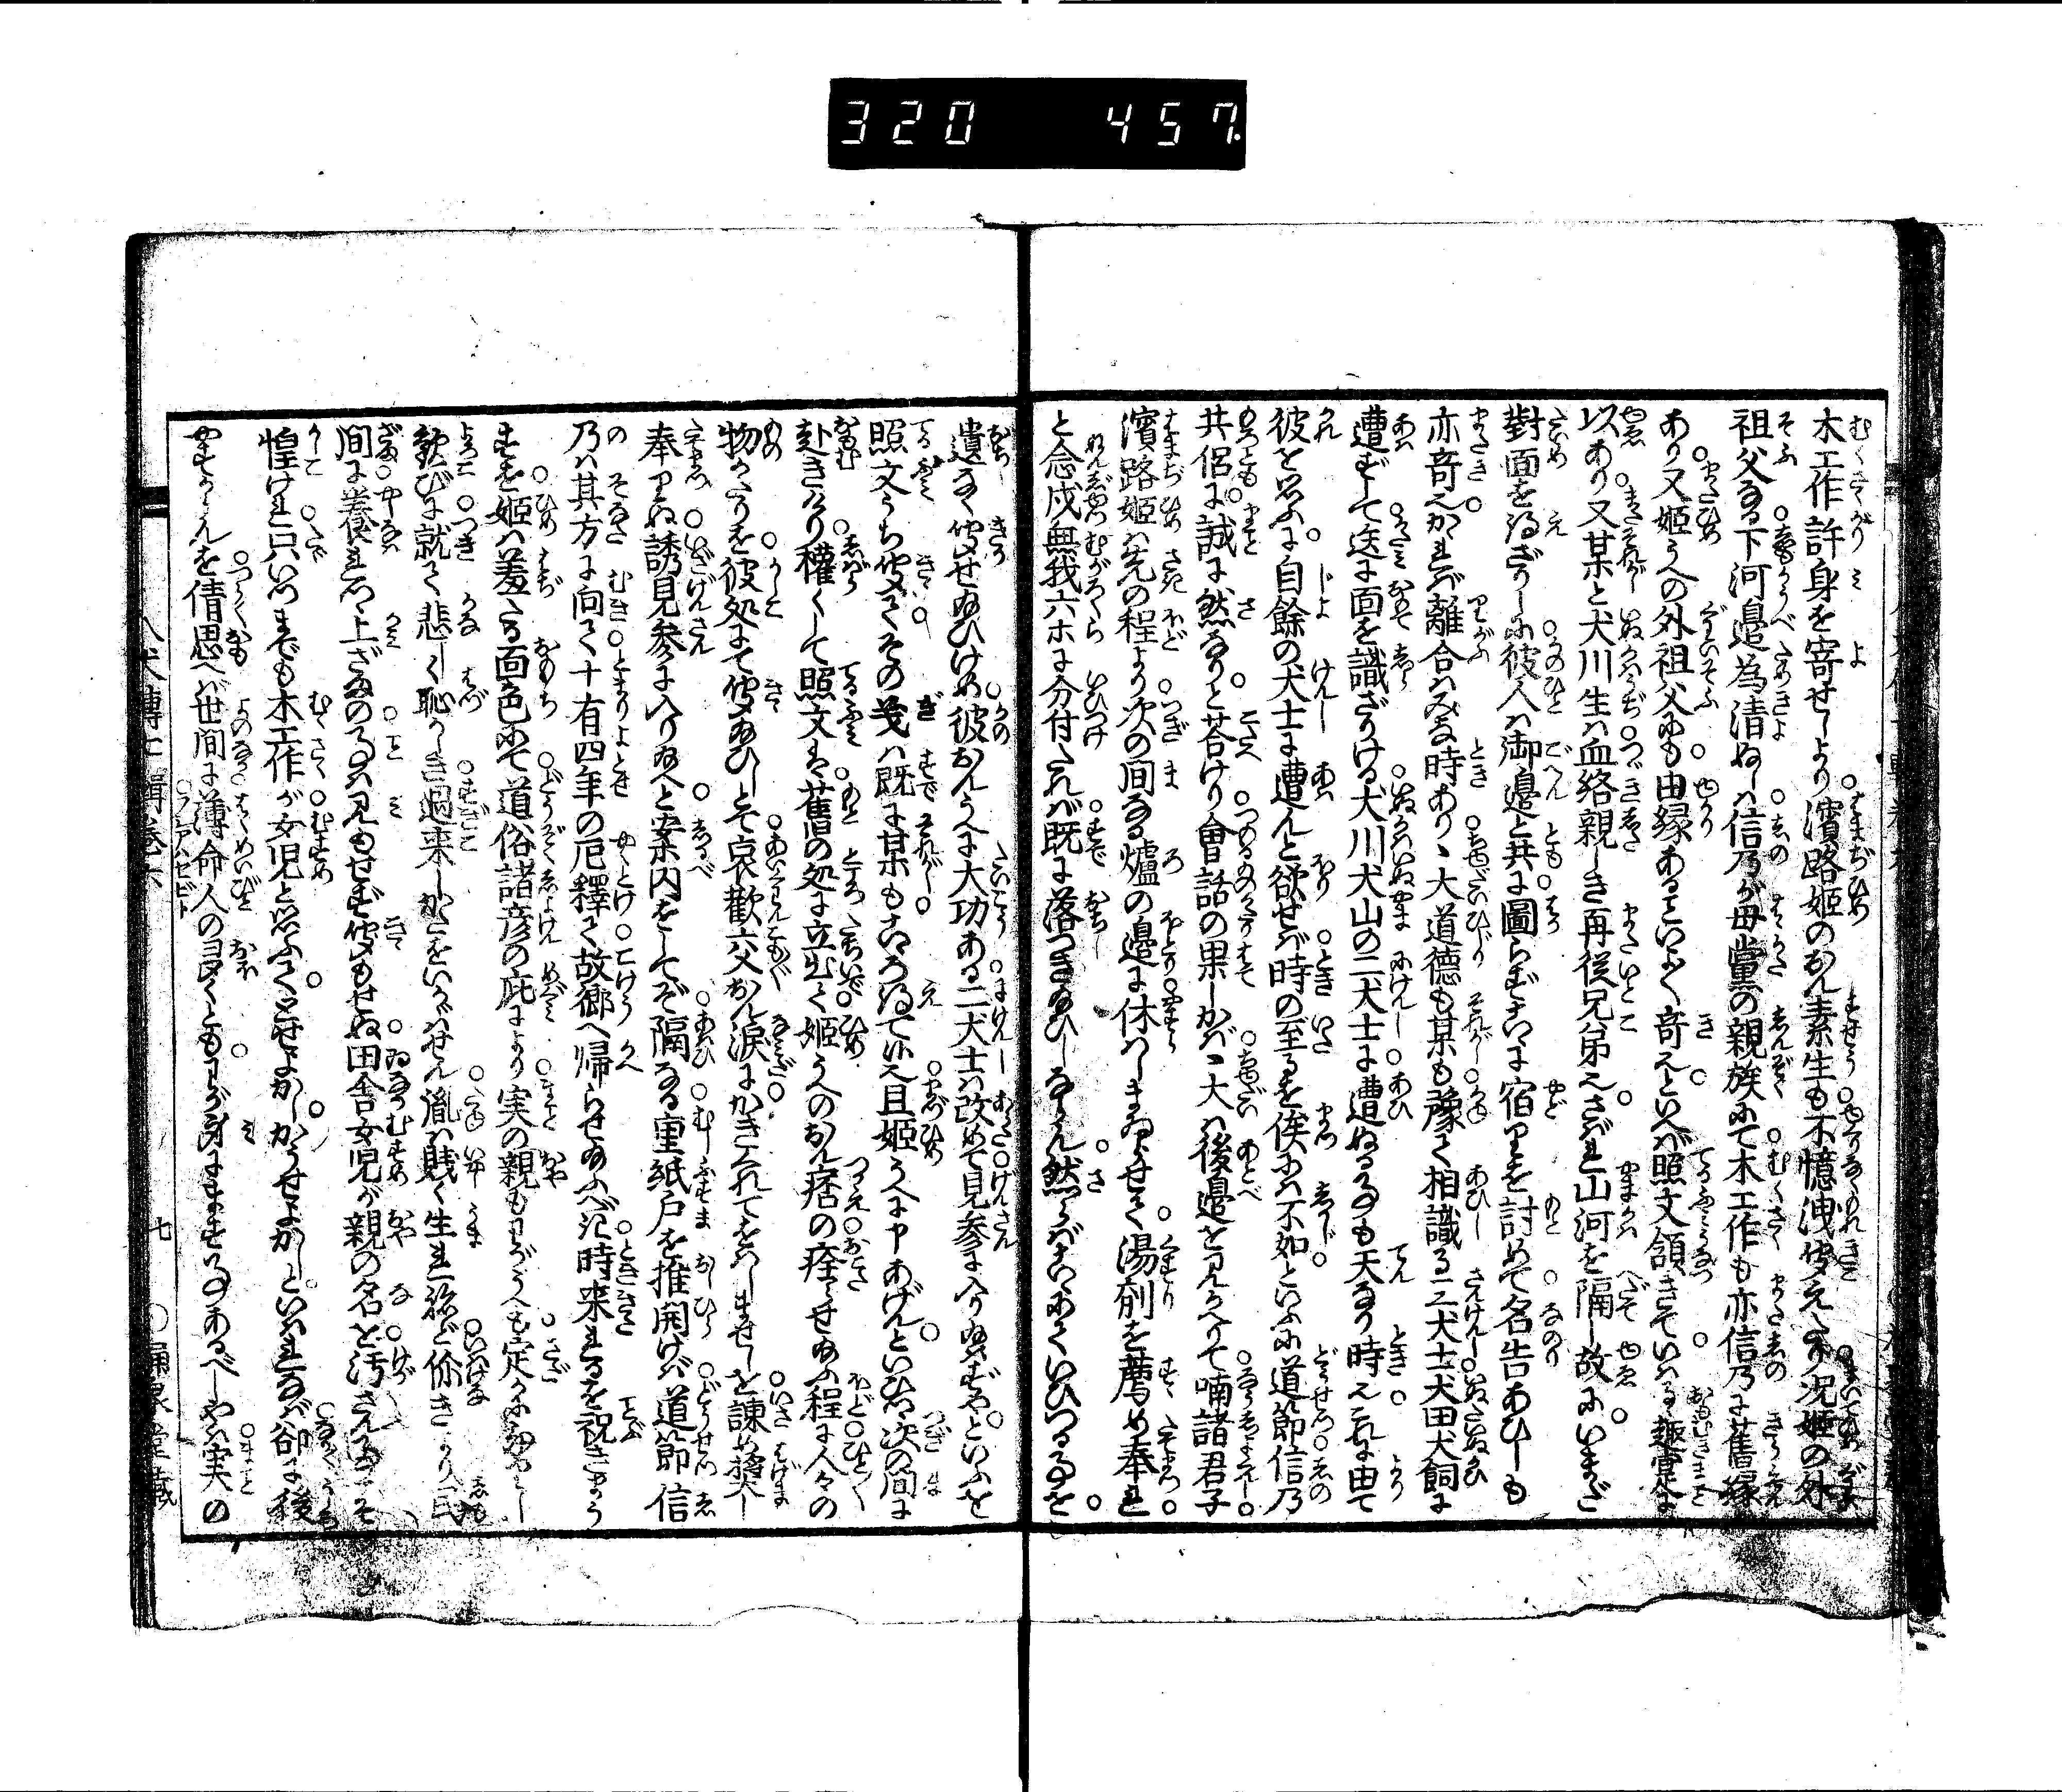 320 457
木工作許身を寄せしより濱路姫のおん素生も不憶洩聞えたり况姫の外
祖父なる下河邉為清ぬしは信乃が母黨の親族にて木工作も亦信乃に舊縁
あり又姫うへの外祖父にも由縁あるはいよゝ奇也といへば照文頷きていはるゝ趣寔に
以あり又某と犬川生は血絡親しき再従兄弟也されど山河を隔し故にいまだ
對面を得ざりしに彼人は御邉と共に圖らずこゝに宿りを討めて名告あひしも
亦奇也かれば離合はみな時あり、大道徳も某も豫て相識る二犬士犬田犬飼に
遭ずして迭に面を識ざりける犬川犬山の二犬士に遭ぬる事も天なり時也これに由て
彼を思ふに自餘の犬士に遭んと欲せば時の至るを俟には不如といふに道節信乃
共侶に誠に然なりと荅けり會話の果しかば、大は後邉を見かへりて喃諸君子
濱路姫は先の程より次の間なる爐の邉に休はしまゐらせて湯劑を薦め奉れ
と念戌無我六ホに分付たれば既に落つき給ひしならん然らばこゝろよくいひつる事を
遺なく聞せ給ひけめ彼おんうへに大功ある二犬士は改めて見参に入り給はずやといふを
照文うち聞てその義は既に某もこゝろ得て候へ且姫うへに申あげんといひつゝ次の間に
赴きけり。
權くして照文は舊の処に立出て姫うへのおん痞の痊らせ給ふ程に人々の
物がたりを彼処にて聞給ひしとぞ哀歡交おん涙にかきくれてをはしませしを諌め奨し
奉りぬ誘見参に入り給へと案内をしてぞ隔なる重紙戸を推開けば道節信
乃は其方に向て十有四年の厄釋て故郷へ帰らせ給ふべき時来れるを祝きまうす
を姫は羞たる面色にて道俗諸彦の庇により実の親もわがうへも定かに知られし
歓びに就て悲しく恥かしき過来しかたをいかゞはせん胤は賤く生れねど侭きより民
間に養れつゝ上ざまの事は見もせず聞もせぬ田舎女児が親の名を汚さん事こそ
惶けれ只いつまでも木工作が女児と思ふてとせよかしかうせよかしといはれなば郤に後
やすからんを倩思へば世間に薄命人の多くともわが身にますものあるべしやは実の
八犬傳七輯巻六 七 ○涌泉堂藏